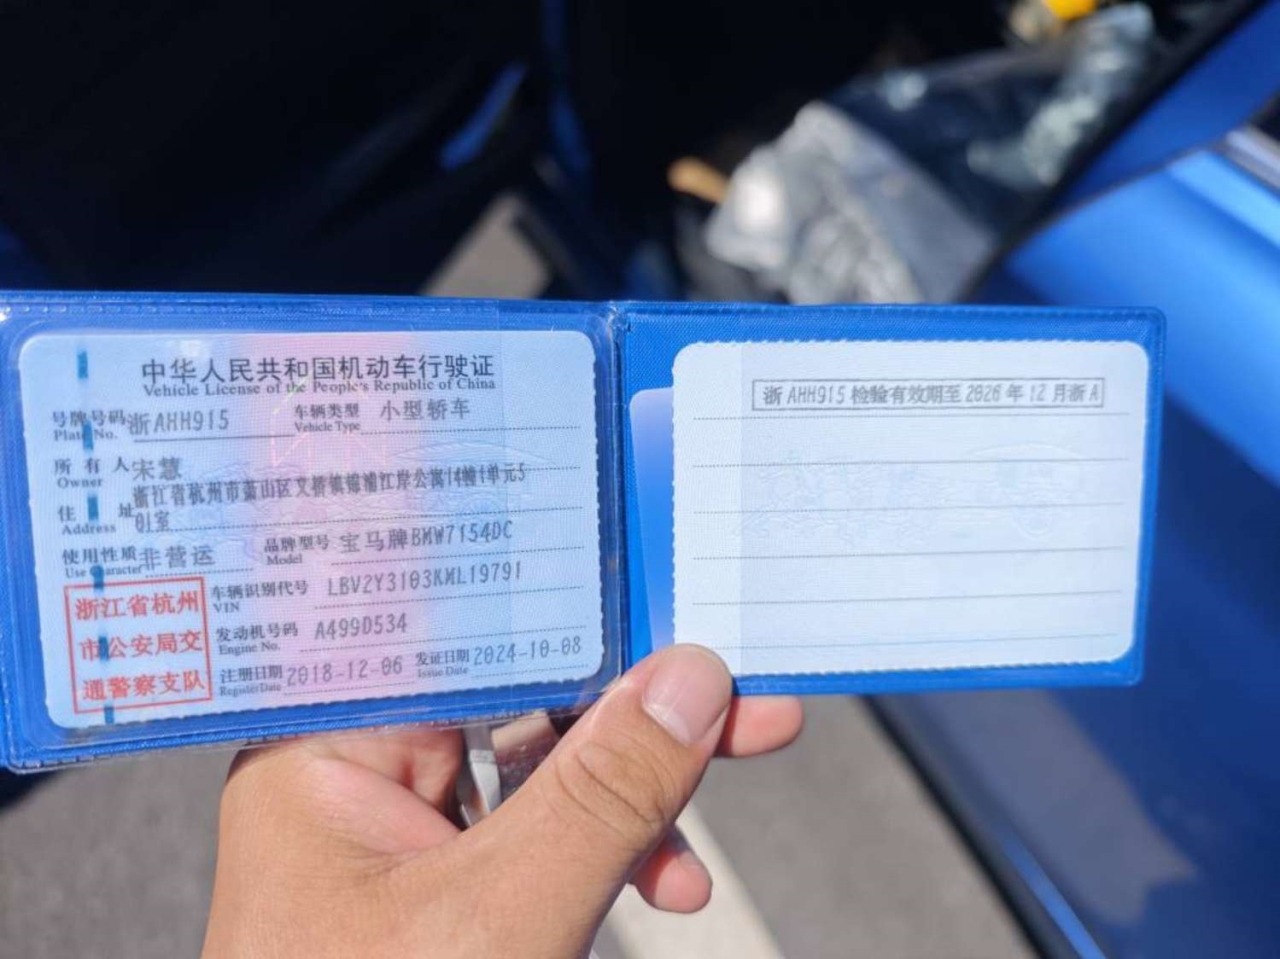 中华人民共和国机动车行驶证
Vehicle License of the People's Republic of China
号牌号码 浙AHH915 车辆类型 小型轿车
Plate No. Vehicle Type
所有人 宋慧
Owner
浙江省杭州市萧山区义桥镇锦浦江岸公寓14幢1单元5
住址 01室
Address
使用性质 非营运 品牌型号 宝马牌BMW7154DC
Use Character Model
浙江省杭州
市公安局交
通警察支队
车辆识别代号 LBV2Y3103KML19791
VIN
发动机号码 A499D534
Engine No.
注册日期 2018-12-06 发证日期 2024-10-08
Register Date Issue Date
浙AHH915 检验有效期至 2026 年 12 月浙A